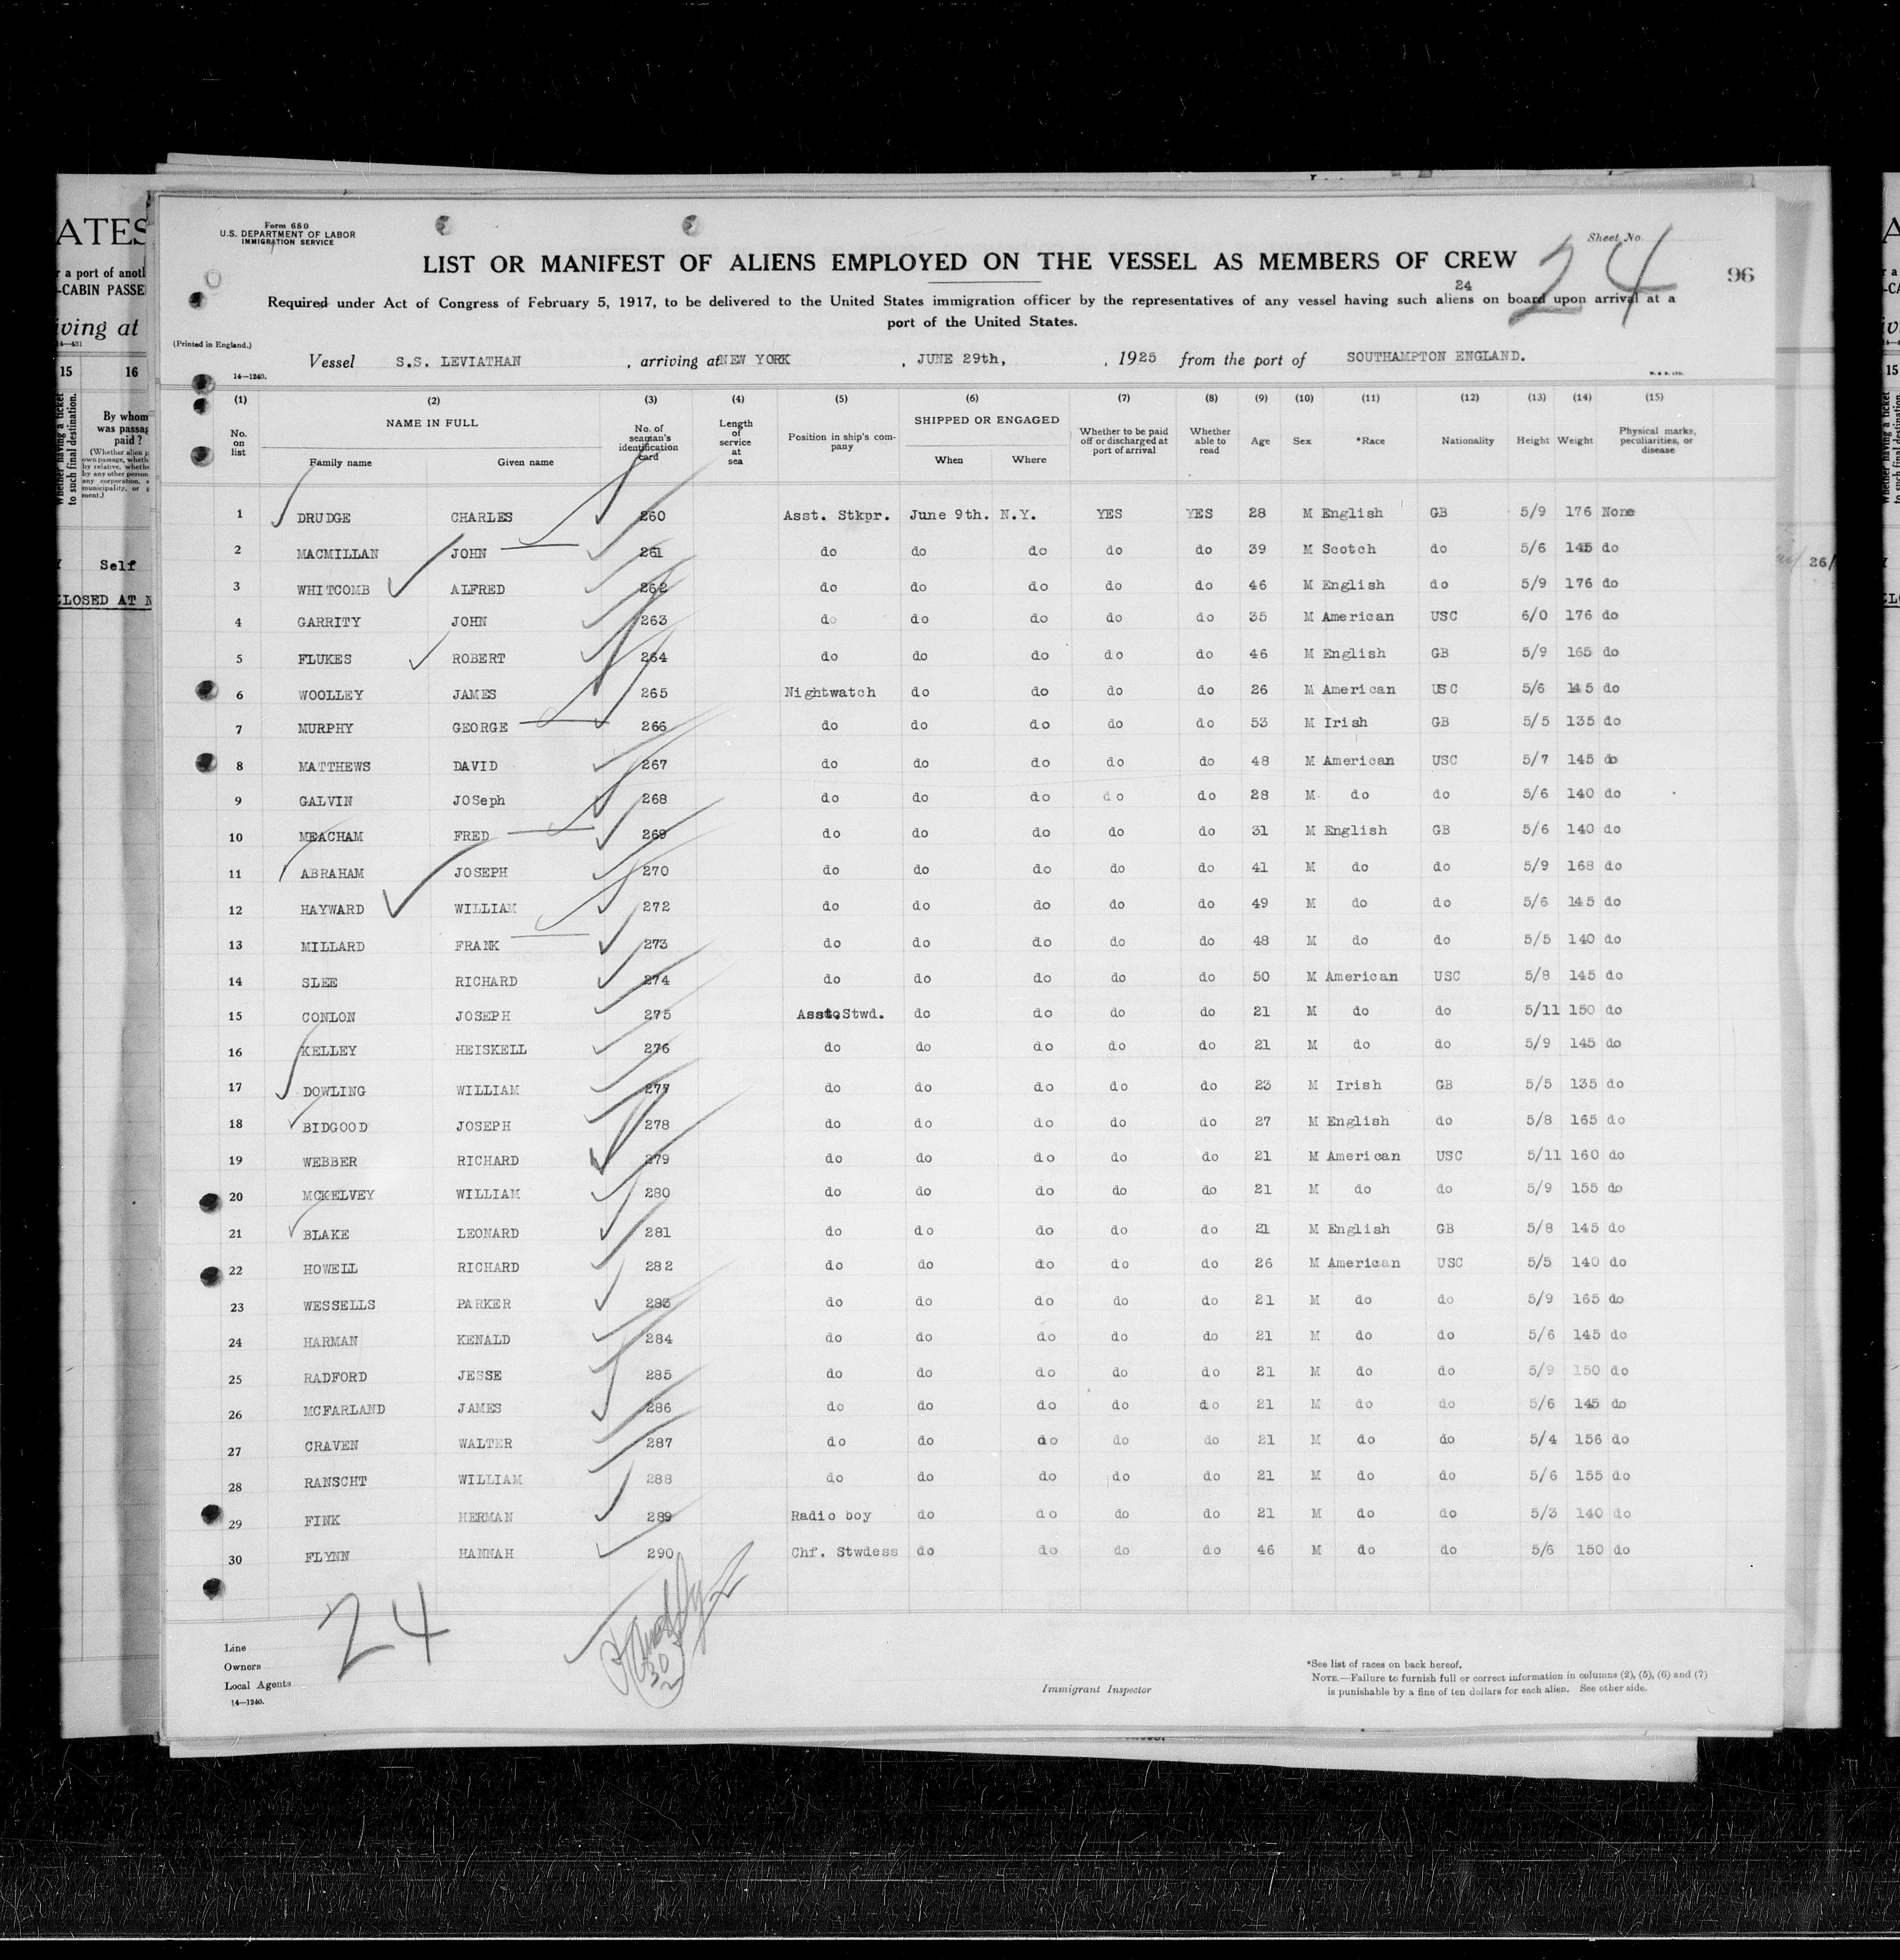 Form 680
U.S. DEPARTMENT OF LABOR
IMMIGRATION SERVICE
Sheet No.
24
96
LIST OR MANIFEST OF ALIENS EMPLOYED ON THE VESSEL AS MEMBERS OF CREW
24
Required under Act of Congress of February 5, 1917, to be delivered to the United States immigration officer by the representatives of any vessel having such aliens on board upon arrival at a
port of the United States.
(Printed in England.)
Vessel S.S. LEVIATHAN , arriving at NEW YORK , JUNE 29th, , 1925 from the port of SOUTHAMPTON ENGLAND.
14—1240.
(1) (2) (3) (4) (5) (6) (7) (8) (9) (10) (11) (12) (13) (14) (15)
No. on list NAME IN FULL Family name Given name No. of seaman's identification card Length of service at sea Position in ship's company SHIPPED OR ENGAGED When Where Whether to be paid off or discharged at port of arrival Whether able to read Age Sex *Race Nationality Height Weight Physical marks, peculiarities, or disease
1 DRUDGE CHARLES 260 Asst. Stkpr. June 9th. N.Y. YES YES 28 M English GB 5/9 176 None
2 MACMILLAN JOHN 261 do do do do do 39 M Scotch do 5/6 145 do
3 WHITCOMB ALFRED 262 do do do do do 46 M English do 5/9 176 do
4 GARRITY JOHN 263 do do do do do 35 M American USC 6/0 176 do
5 FLUKES ROBERT 264 do do do do do 46 M English GB 5/9 165 do
6 WOOLLEY JAMES 265 Nightwatch do do do do 26 M American USC 5/6 145 do
7 MURPHY GEORGE 266 do do do do do 53 M Irish GB 5/5 135 do
8 MATTHEWS DAVID 267 do do do do do 48 M American USC 5/7 145 do
9 GALVIN JOSeph 268 do do do do do 28 M do do 5/6 140 do
10 MEACHAM FRED 269 do do do do do 31 M English GB 5/6 140 do
11 ABRAHAM JOSEPH 270 do do do do do 41 M do do 5/9 168 do
12 HAYWARD WILLIAM 272 do do do do do 49 M do do 5/6 145 do
13 MILLARD FRANK 273 do do do do do 48 M do do 5/5 140 do
14 SLEE RICHARD 274 do do do do do 50 M American USC 5/8 145 do
15 CONLON JOSEPH 275 Asst.Stwd. do do do do 21 M do do 5/11 150 do
16 KELLEY HEISKELL 276 do do do do do 21 M do do 5/9 145 do
17 DOWLING WILLIAM 277 do do do do do 23 M Irish GB 5/5 135 do
18 BIDGOOD JOSEPH 278 do do do do do 27 M English do 5/8 165 do
19 WEBBER RICHARD 279 do do do do do 21 M American USC 5/11 160 do
20 MCKELVEY WILLIAM 280 do do do do do 21 M do do 5/9 155 do
21 BLAKE LEONARD 281 do do do do do 21 M English GB 5/8 145 do
22 HOWELL RICHARD 282 do do do do do 26 M American USC 5/5 140 do
23 WESSELLS PARKER 283 do do do do do 21 M do do 5/9 165 do
24 HARMAN KENALD 284 do do do do do 21 M do do 5/6 145 do
25 RADFORD JESSE 285 do do do do do 21 M do do 5/9 150 do
26 MCFARLAND JAMES 286 do do do do do 21 M do do 5/6 145 do
27 CRAVEN WALTER 287 do do do do do 21 M do do 5/4 156 do
28 RANSCHT WILLIAM 288 do do do do do 21 M do do 5/6 155 do
29 FINK HERMAN 289 Radio boy do do do do 21 M do do 5/3 140 do
30 FLYNN HANNAH 290 Chf. Stwdess do do do do 46 M do do 5/6 150 do
24
30
Line
Owners
Local Agents
14—1240.
Immigrant Inspector
*See list of races on back hereof.
NOTE.—Failure to furnish full or correct information in columns (2), (5), (6) and (7)
is punishable by a fine of ten dollars for each alien. See other side.
ATES
r a port of anoth
-CABIN PASSE
iving at
14—431
15 16
Whether having a ticket to such final destination.
By whom was passag paid ?
Self
LOSED AT N
26/